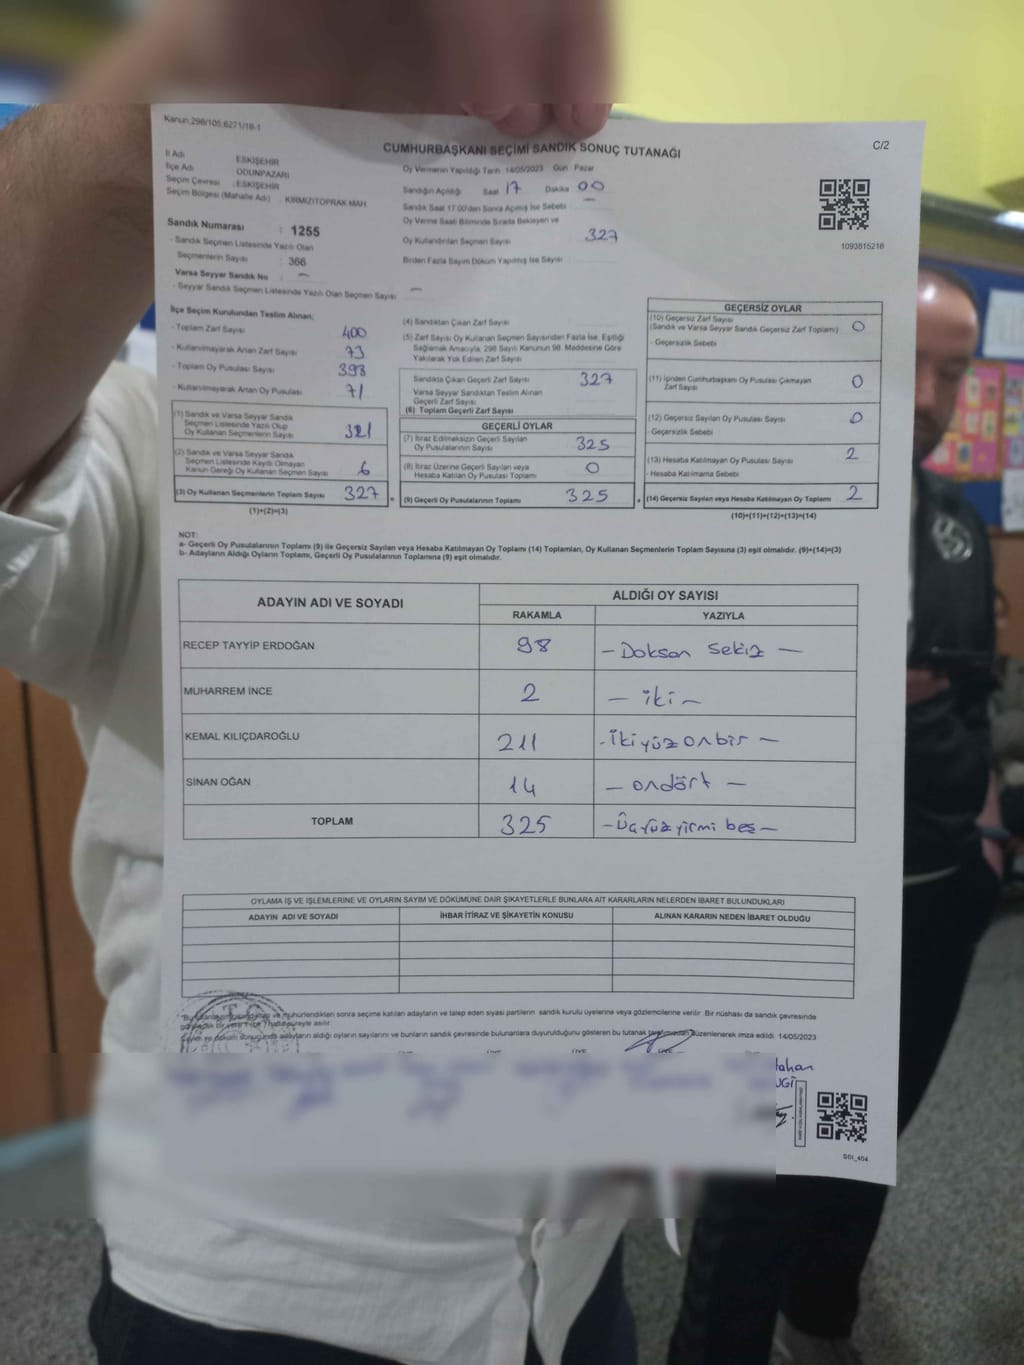 Kanun:298/105,6271/18-1
CUMHURBAŞKANI SEÇİMİ SANDIK SONUÇ TUTANAĞI
C/2
İl Adı : ESKİŞEHİR
İlçe Adı : ODUNPAZARI
Seçim Çevresi : ESKİŞEHİR
Seçim Bölgesi (Mahalle Adı) : KIRMIZITOPRAK MAH.
Sandık Numarası : 1255
- Sandık Seçmen Listesinde Yazılı Olan
Seçmenlerin Sayısı : 366
Varsa Seyyar Sandık No : —
- Seyyar Sandık Seçmen Listesinde Yazılı Olan Seçmen Sayısı : —
Oy Vermenin Yapıldığı Tarih : 14/05/2023 Gün : Pazar
Sandığın Açıldığı Saat 17 Dakika 00
Sandık Saat 17:00'den Sonra Açılmış İse Sebebi : —
Oy Verme Saati Bitiminde Sırada Bekleyen ve
Oy Kullandırılan Seçmen Sayısı : 327
Birden Fazla Sayım Döküm Yapılmış İse Sayısı :
1093815216
İlçe Seçim Kurulundan Teslim Alınan;
- Toplam Zarf Sayısı : 400
- Kullanılmayarak Artan Zarf Sayısı : 73
- Toplam Oy Pusulası Sayısı : 398
- Kullanılmayarak Artan Oy Pusulası : 71
(1) Sandık ve Varsa Seyyar Sandık
Seçmen Listesinde Yazılı Olup
Oy Kullanan Seçmenlerin Sayısı 321
(2) Sandık ve Varsa Seyyar Sandık
Seçmen Listesinde Kayıtlı Olmayan
Kanun Gereği Oy Kullanan Seçmen Sayısı 6
(3) Oy Kullanan Seçmenlerin Toplam Sayısı 327
(1)+(2)=(3)
(4) Sandıktan Çıkan Zarf Sayısı :
(5) Zarf Sayısı Oy Kullanan Seçmen Sayısından Fazla İse, Eşitliği
Sağlamak Amacıyla, 298 Sayılı Kanunun 98. Maddesine Göre
Yakılarak Yok Edilen Zarf Sayısı :
Sandıkta Çıkan Geçerli Zarf Sayısı 327
Varsa Seyyar Sandıktan Teslim Alınan
Geçerli Zarf Sayısı
(6) Toplam Geçerli Zarf Sayısı
GEÇERLİ OYLAR
(7) İtiraz Edilmeksizin Geçerli Sayılan
Oy Pusulalarının Sayısı 325
(8) İtiraz Üzerine Geçerli Sayılan veya
Hesaba Katılan Oy Pusulası Toplamı 0
(9) Geçerli Oy Pusulalarının Toplamı 325
GEÇERSİZ OYLAR
(10) Geçersiz Zarf Sayısı
(Sandık ve Varsa Seyyar Sandık Geçersiz Zarf Toplamı) 0
- Geçersizlik Sebebi
(11) İçinden Cumhurbaşkanı Oy Pusulası Çıkmayan
Zarf Sayısı 0
(12) Geçersiz Sayılan Oy Pusulası Sayısı 0
- Geçersizlik Sebebi
(13) Hesaba Katılmayan Oy Pusulası Sayısı 2
- Hesaba Katılmama Sebebi
(14) Geçersiz Sayılan veya Hesaba Katılmayan Oy Toplamı 2
(10)+(11)+(12)+(13)=(14)
NOT:
a- Geçerli Oy Pusulalarının Toplamı (9) ile Geçersiz Sayılan veya Hesaba Katılmayan Oy Toplamı (14) Toplamları, Oy Kullanan Seçmenlerin Toplam Sayısına (3) eşit olmalıdır. (9)+(14)=(3)
b- Adayların Aldığı Oyların Toplamı, Geçerli Oy Pusulalarının Toplamına (9) eşit olmalıdır.
ADAYIN ADI VE SOYADI ALDIĞI OY SAYISI
RAKAMLA YAZIYLA
RECEP TAYYİP ERDOĞAN 98 - Doksan sekiz -
MUHARREM İNCE 2 - iki -
KEMAL KILIÇDAROĞLU 211 - İkiyüzonbir -
SİNAN OĞAN 14 - ondört -
TOPLAM 325 - Üçyüzyirmi beş -
OYLAMA İŞ VE İŞLEMLERİNE VE OYLARIN SAYIM VE DÖKÜMÜNE DAİR ŞİKAYETLERLE BUNLARA AİT KARARLARIN NELERDEN İBARET BULUNDUKLARI
ADAYIN ADI VE SOYADI İHBAR İTİRAZ VE ŞİKAYETİN KONUSU ALINAN KARARIN NEDEN İBARET OLDUĞU
mühürlendikten sonra seçime katılan adayların ve talep eden siyasi partilerin sandık kurulu üyelerine veya gözlemcilerine verilir. Bir nüshası da sandık çevresinde
süreyle asılır.
adayların aldığı oyların sayılarını ve bunların sandık çevresinde bulunanlara duyurulduğunu gösteren bu tutanak düzenlenerek imza edildi. 14/05/2023
ÜYE ÜYE ÜYE